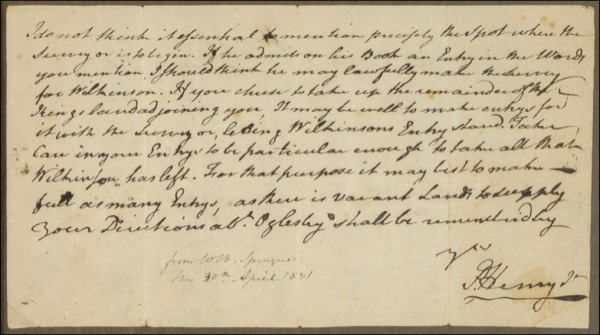 I do not think it essential to mention precisely the Spot where the
Surveyor is to begin. If he admits on his Book an Entry in the Words
you mention I should think he may lawfully make the Survey
for Wilkinson. If you chuse to take up the remainder of the
Kings land adjoining you It may be well to make entrys for
it with the Surveyor, letting Wilkinsons Entry stand. Take
Care in your Entrys to be particular enough to take all that
Wilkinson has left. For that purpose it may best to make
full as many Entrys, as there is vacant Land to supply
Your Directions abt. Oglesby shall be remembered by
yrs
P. Henry Jr
from W B. Sprague
30th April 1831